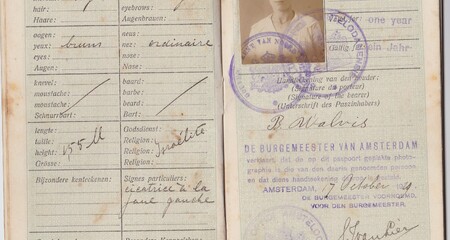 hair:
Haar:
eyebrows:
Augenbrauen:
oogen:
yeux: bruns
eyes:
Augen:
neus:
nez: ordinaire
nose:
Nase:
knevel:
moustache:
moustache:
Schnurrbart:
baard:
barbe:
beard:
Bart:
lengte:
taille: 155 M
height:
Grösse:
Godsdienst:
Religion: Israélite
Religion:
Religion:
Bijzondere kenteekenen:
Signes particuliers:
cicatrice à la
joue gauche
one year
ein Jahr
Handteekening van den houder:
(Signature du porteur)
(Signature of the bearer)
(Unterschrift des Passinhabers)
B. Walvis
DE BURGEMEESTER VAN AMSTERDAM
verklaart, dat de op dit paspoort geplakte photo-
graphie is die van den daarin genoemden persoon
en dat diens handteekening hierop is gesteld.
AMSTERDAM, 17 October
DE BURGEMEESTER VOORNOEMD,
VOOR DEN BURGEMEESTER,